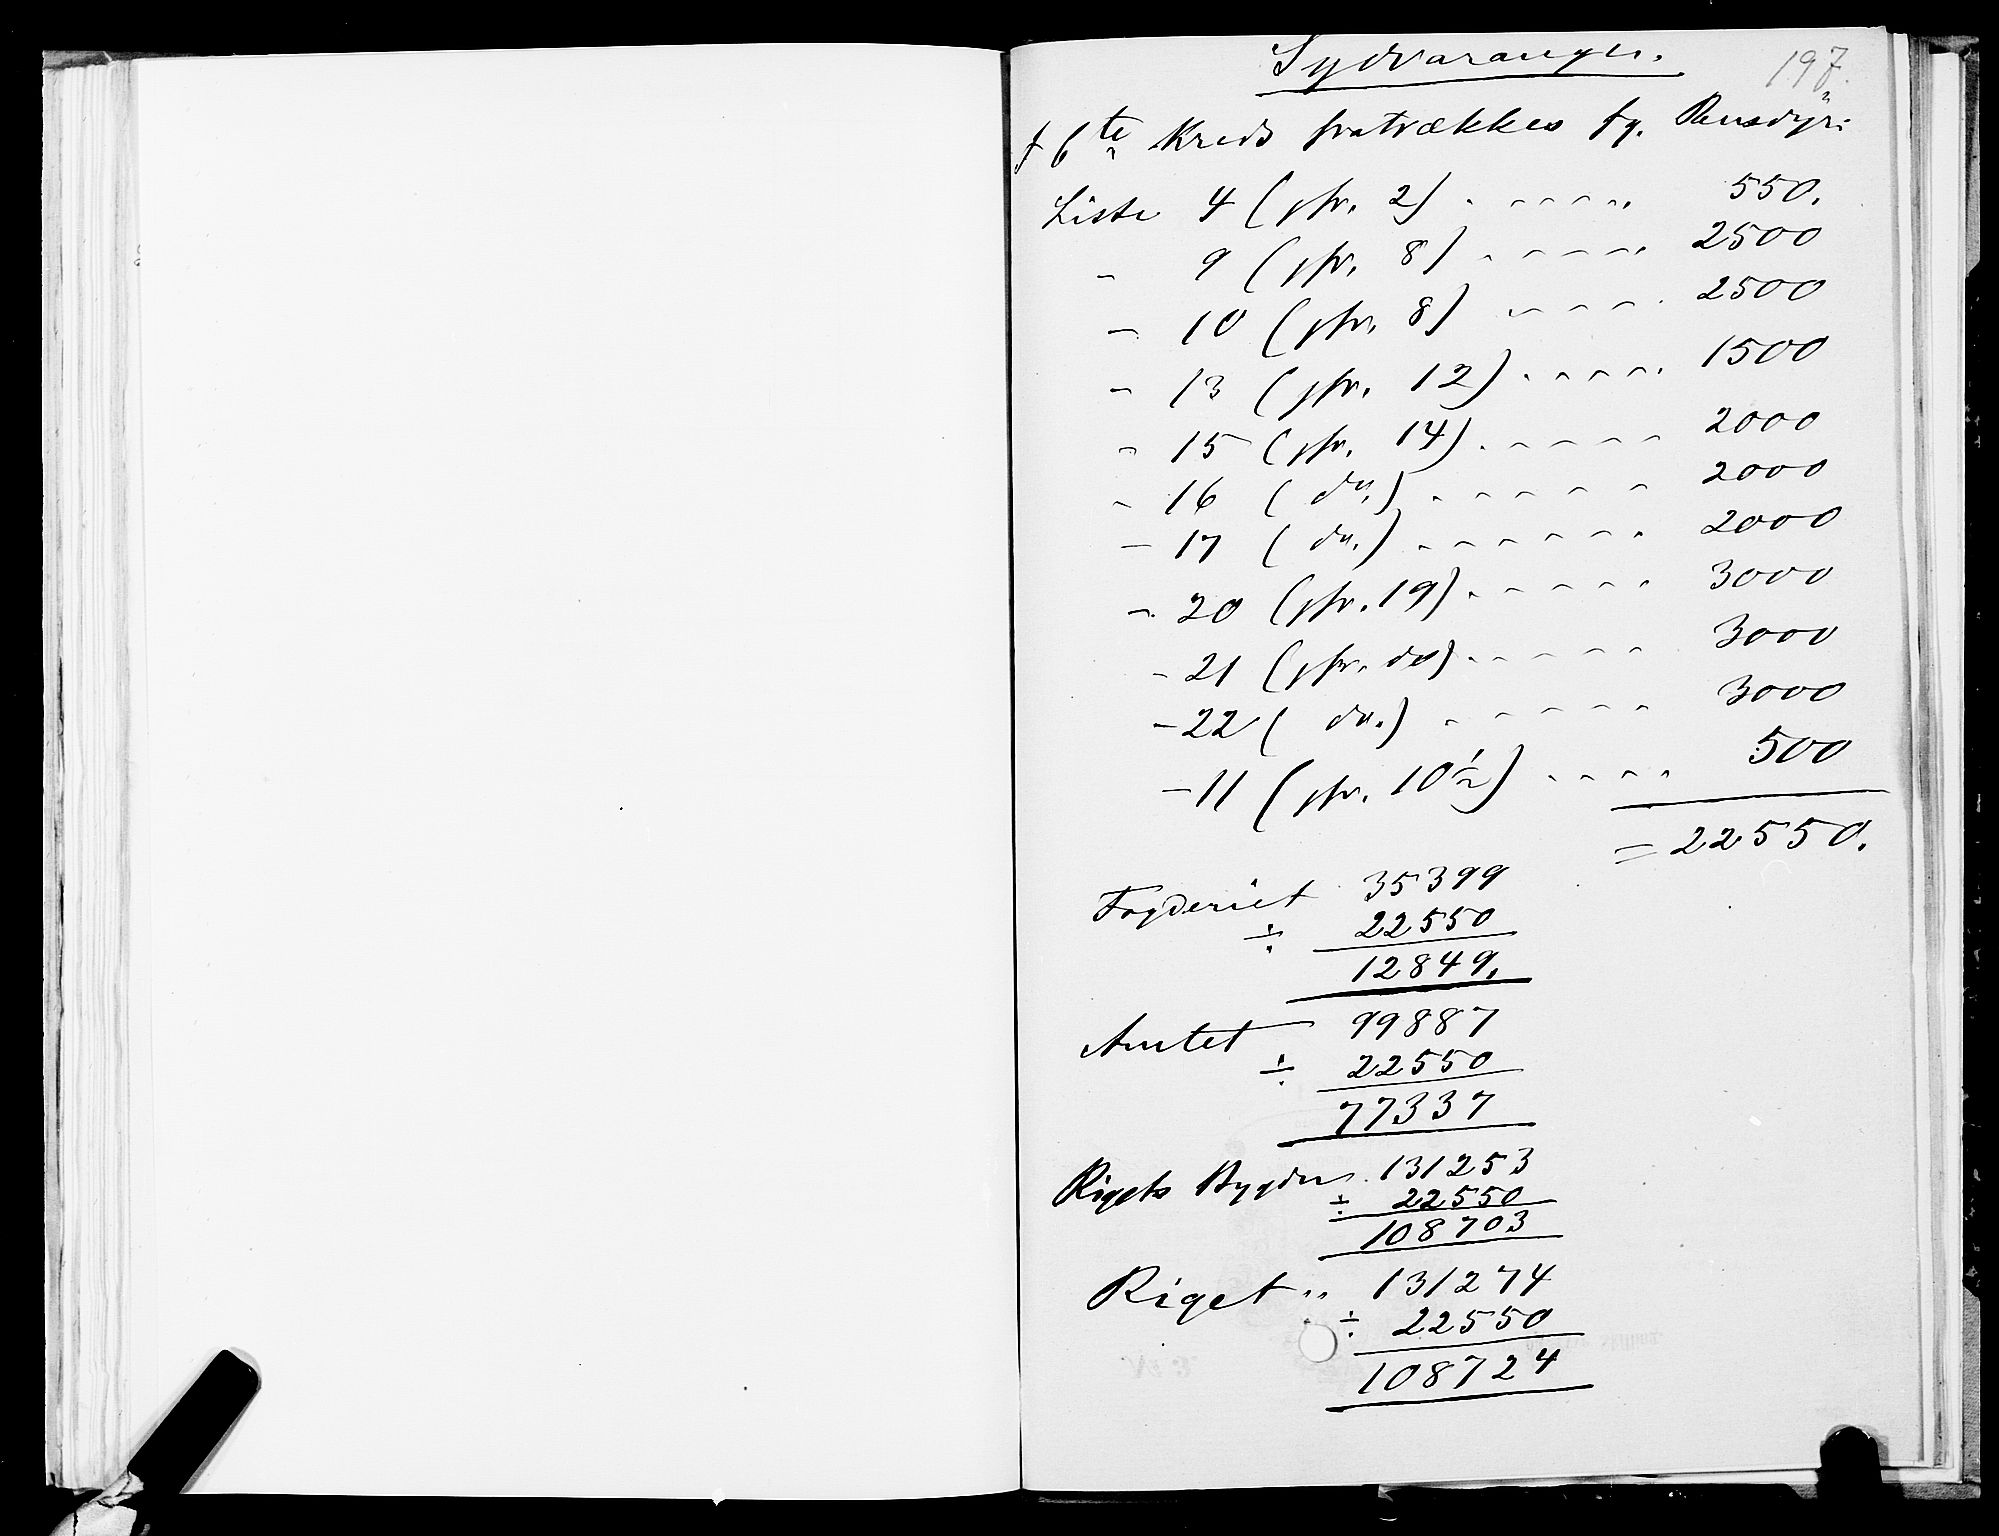 Sydvaranger.
197.
I 6te Kreds fratrækkes fg. Rensdyr:
Liste 4 (jfr. 2) . - - - - . 550.
- 9 (jfr. 8) . - - - - 2500
- 10 (jfr. 8) - - - - . 2500
- 13 (jfr. 12) . - - - - . 1500
- 15 (jfr. 14) . - - - - - 2000
- 16 ( do.) . - - - - - 2000
- 17 ( do.) . - - - - - . 2000
- 20 (jfr. 19) . - - - - - 3000
- 21 (jfr. do) . - - - - - 3000
- 22 ( do.) . - - - - - 3000
- 11 (jfr. 10½) . - - - . 500
= 22550.
Fogderiet 35399
÷ 22550
12849.
Amtet 99887
÷ 22550
77337
Rigets Bygder 131253
÷ 22550
108703
Riget .. 131274
÷ 22550
108724